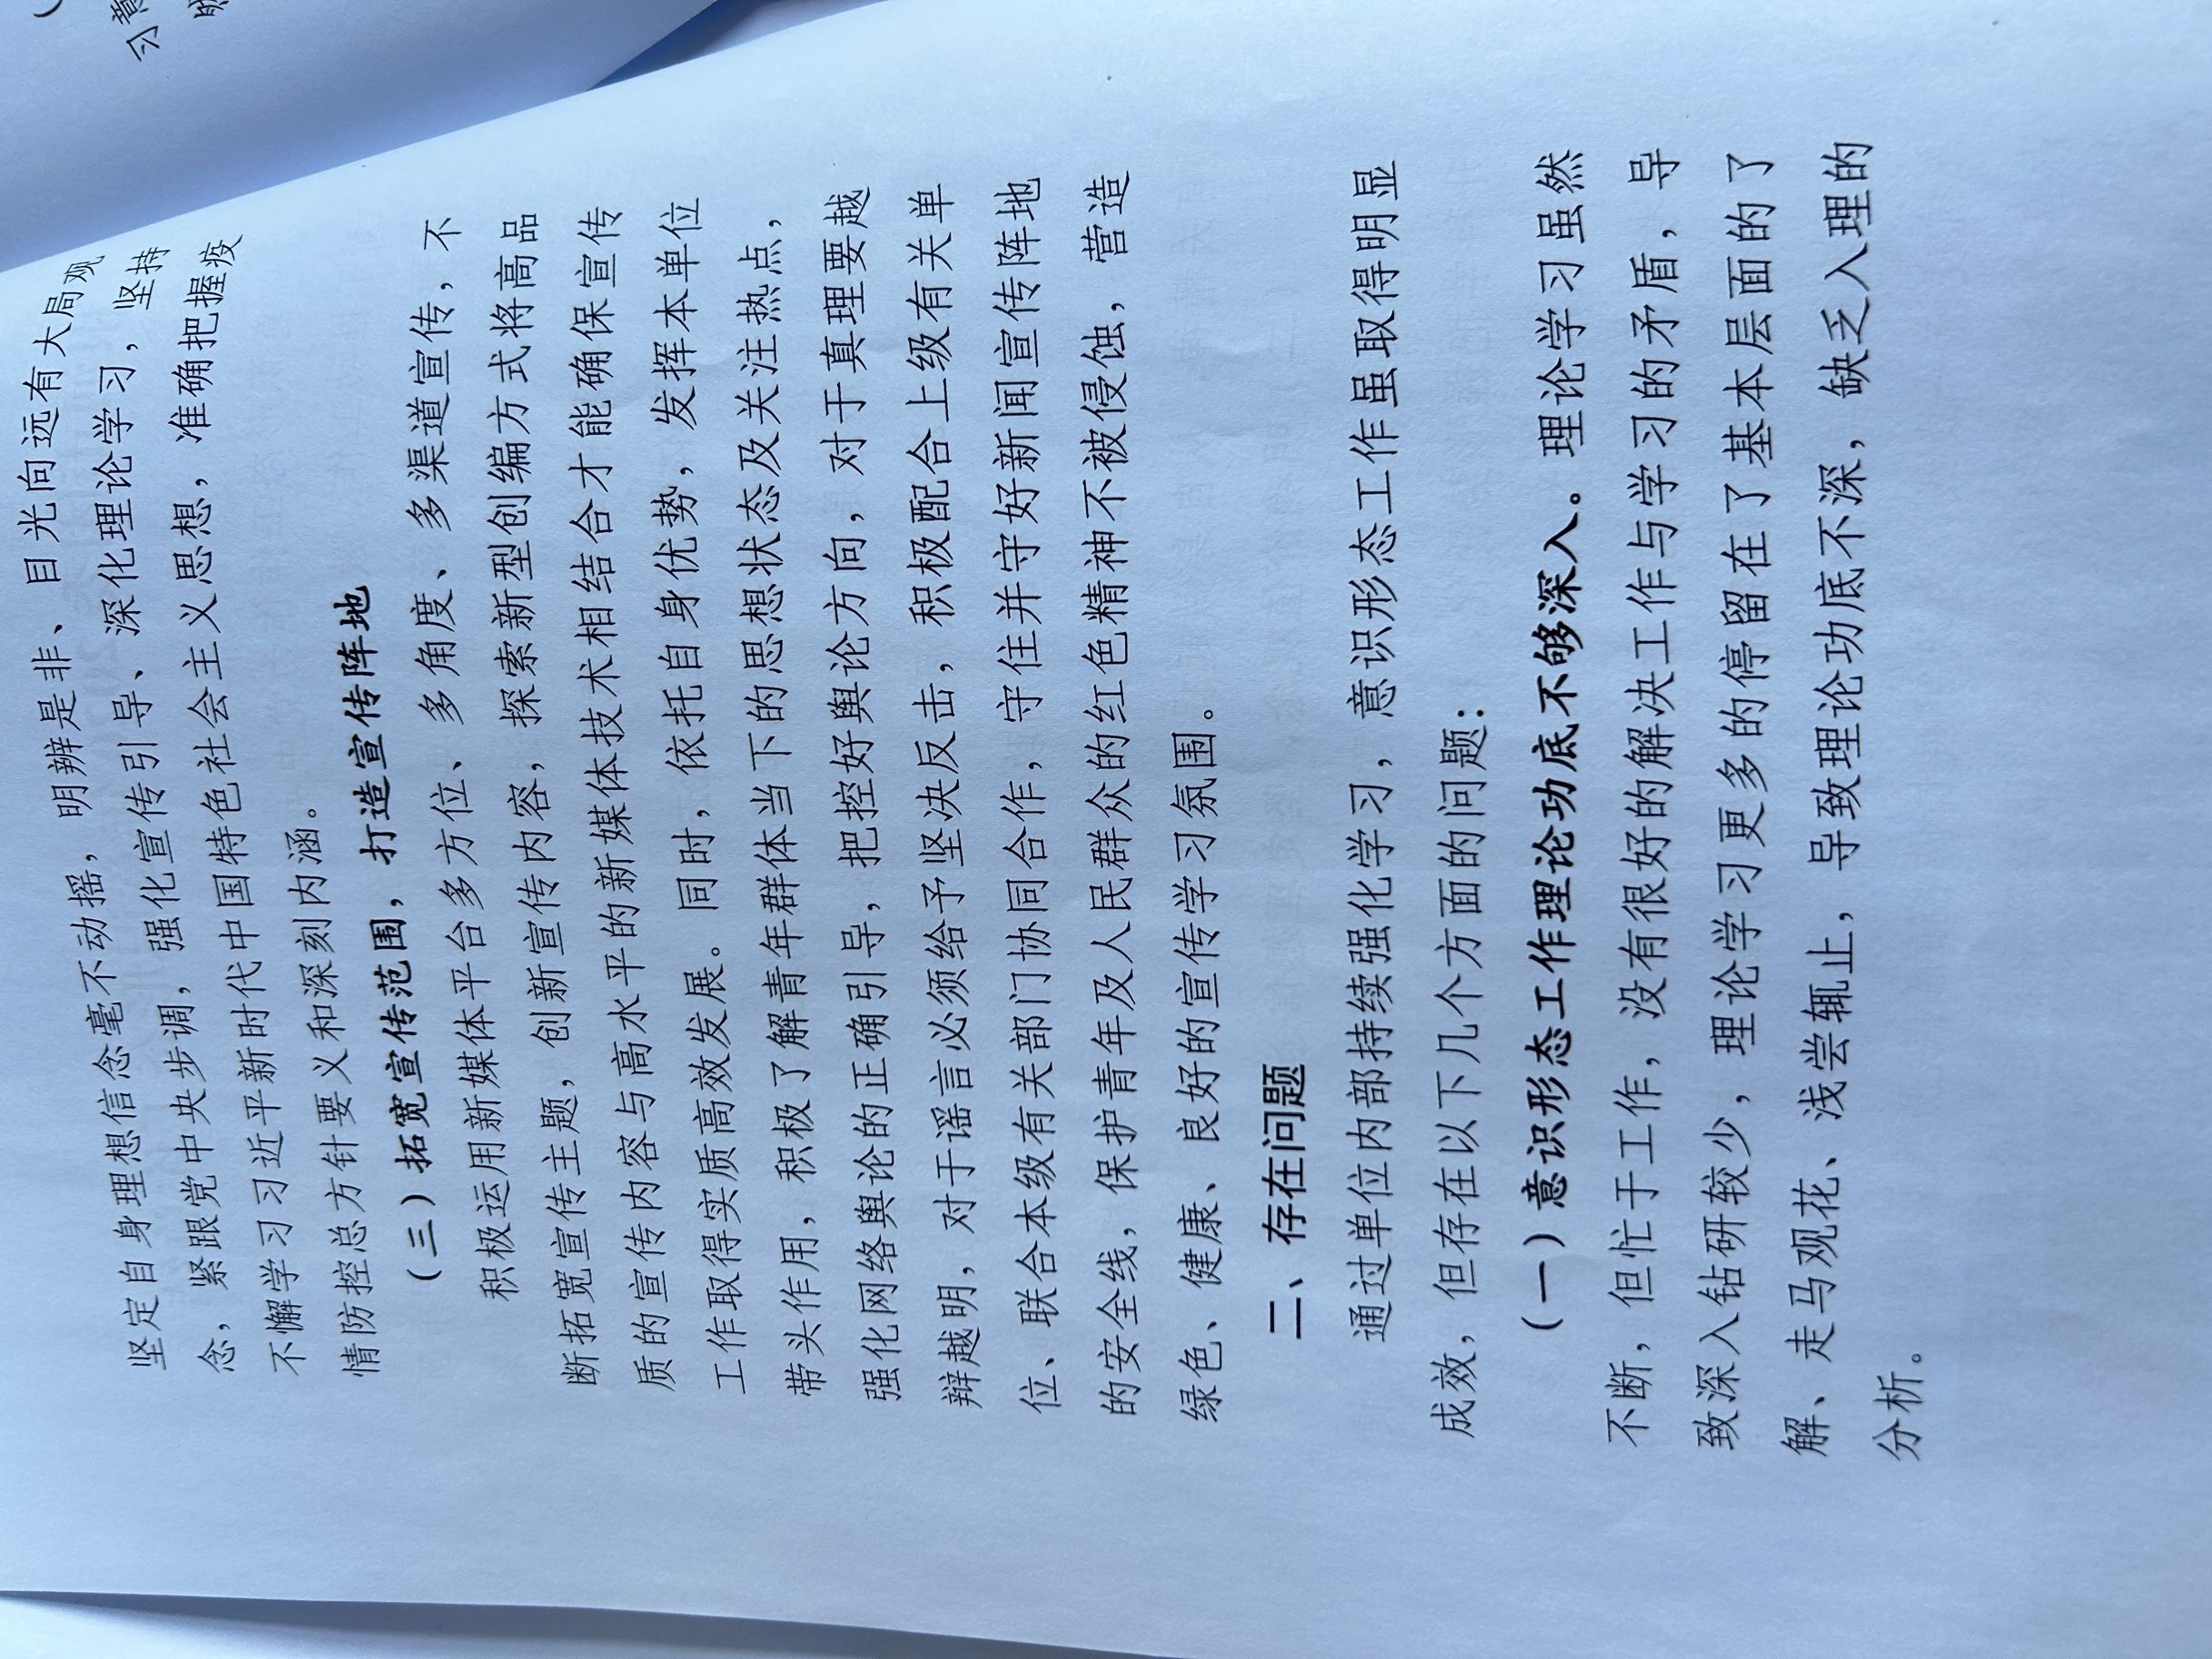 坚定自身理想信念毫不动摇，明辨是非、目光向远有大局观
念，紧跟党中央步调，强化宣传引导、深化理论学习，坚持
不懈学习习近平新时代中国特色社会主义思想，准确把握疫
情防控总方针要义和深刻内涵。
（三）拓宽宣传范围，打造宣传阵地
积极运用新媒体平台多方位、多角度、多渠道宣传，不
断拓宽宣传主题，创新宣传内容，探索新型创编方式将高品
质的宣传内容与高水平的新媒体技术相结合才能确保宣传
工作取得实质高效发展。同时，依托自身优势，发挥本单位
带头作用，积极了解青年群体当下的思想状态及关注热点，
强化网络舆论的正确引导，把控好舆论方向，对于真理要越
辩越明，对于谣言必须给予坚决反击，积极配合上级有关单
位、联合本级有关部门协同合作，守住并守好新闻宣传阵地
的安全线，保护青年及人民群众的红色精神不被侵蚀，营造
绿色、健康、良好的宣传学习氛围。
二、存在问题
通过单位内部持续强化学习，意识形态工作虽取得明显
成效，但存在以下几个方面的问题：
（一）意识形态工作理论功底不够深入。理论学习虽然
不断，但忙于工作，没有很好的解决工作与学习的矛盾，导
致深入钻研较少，理论学习更多的停留在了基本层面的了
解、走马观花、浅尝辄止，导致理论功底不深，缺乏入理的
分析。